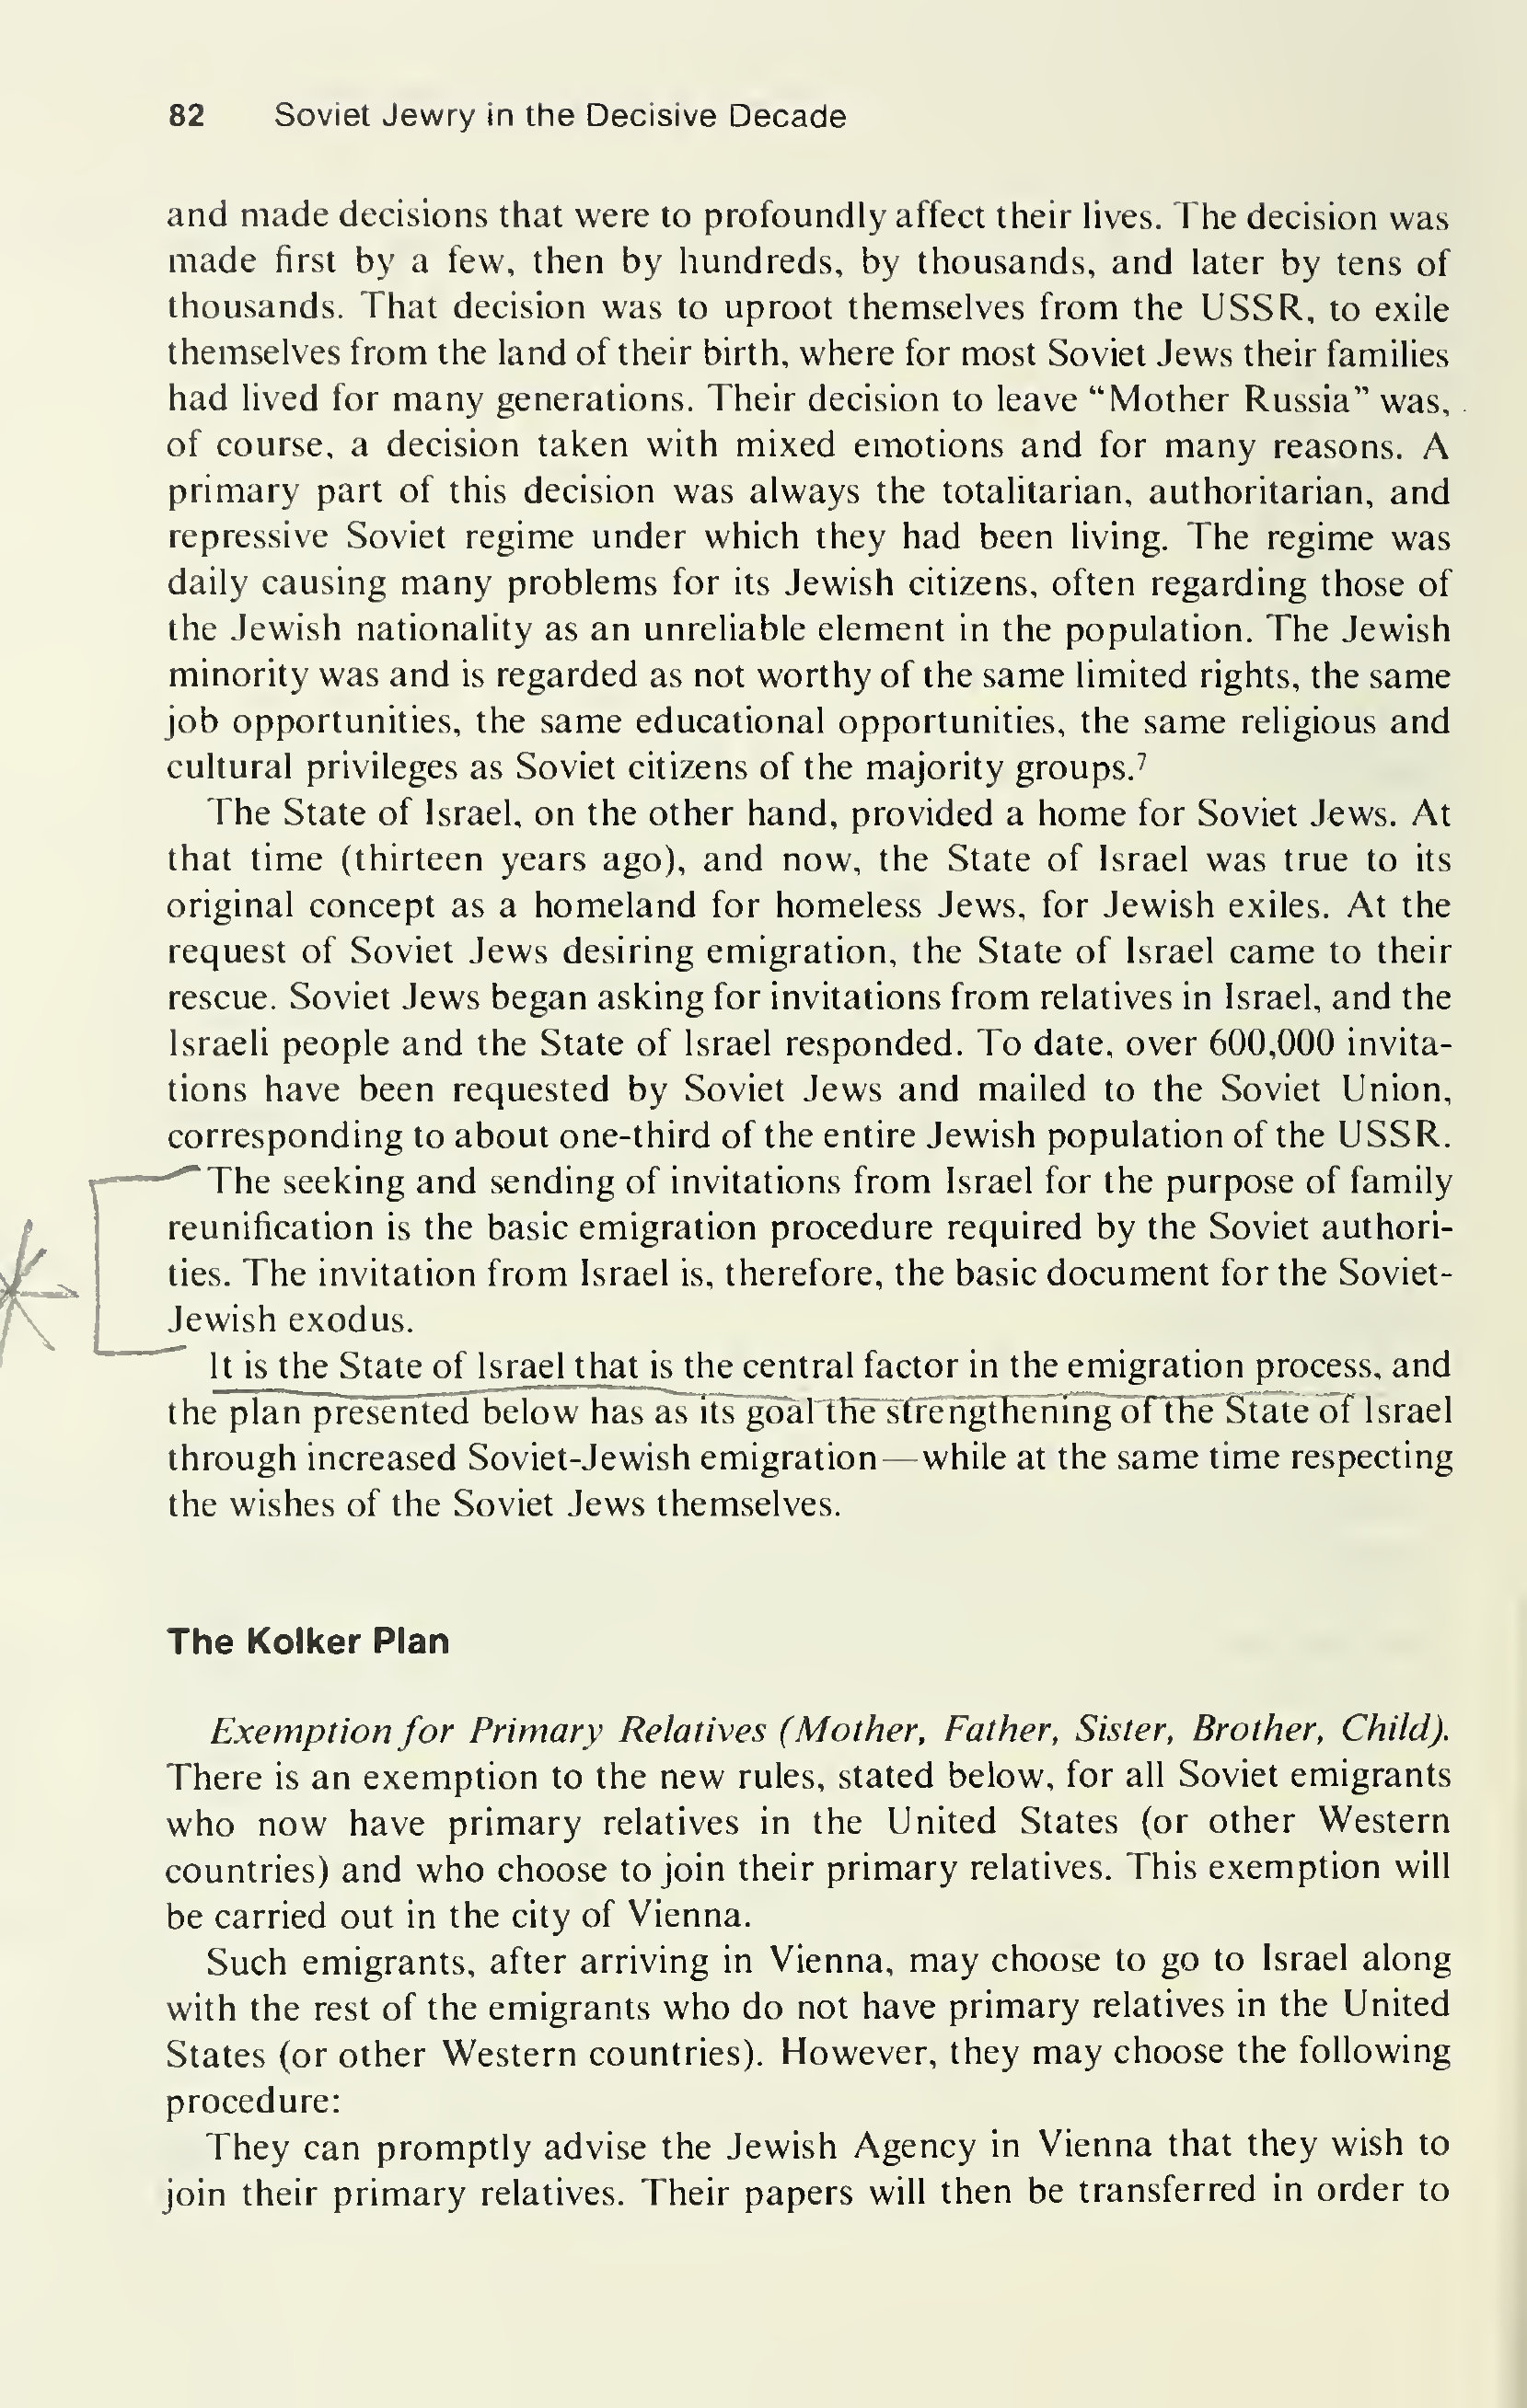 82 Soviet Jewry in the Decisive Decade
and made decisions that were to profoundly affect their lives. The decision was
made first by a few, then by hundreds, by thousands, and later by tens of
thousands. That decision was to uproot themselves from the USSR, to exile
themselves from the land of their birth, where for most Soviet Jews their families
had lived for many generations. Their decision to leave “Mother Russia” was,
of course, a decision taken with mixed emotions and for many reasons. A
primary part of this decision was always the totalitarian, authoritarian, and
repressive Soviet regime under which they had been living. The regime was
daily causing many problems for its Jewish citizens, often regarding those of
the Jewish nationality as an unreliable element in the population. The Jewish
minority was and is regarded as not worthy of the same limited rights, the same
job opportunities, the same educational opportunities, the same religious and
cultural privileges as Soviet citizens of the majority groups.⁷
The State of Israel, on the other hand, provided a home for Soviet Jews. At
that time (thirteen years ago), and now, the State of Israel was true to its
original concept as a homeland for homeless Jews, for Jewish exiles. At the
request of Soviet Jews desiring emigration, the State of Israel came to their
rescue. Soviet Jews began asking for invitations from relatives in Israel, and the
Israeli people and the State of Israel responded. To date, over 600,000 invita-
tions have been requested by Soviet Jews and mailed to the Soviet Union,
corresponding to about one-third of the entire Jewish population of the USSR.
The seeking and sending of invitations from Israel for the purpose of family
reunification is the basic emigration procedure required by the Soviet authori-
ties. The invitation from Israel is, therefore, the basic document for the Soviet-
Jewish exodus.
It is the State of Israel that is the central factor in the emigration process, and
the plan presented below has as its goal the strengthening of the State of Israel
through increased Soviet-Jewish emigration—while at the same time respecting
the wishes of the Soviet Jews themselves.
The Kolker Plan
Exemption for Primary Relatives (Mother, Father, Sister, Brother, Child).
There is an exemption to the new rules, stated below, for all Soviet emigrants
who now have primary relatives in the United States (or other Western
countries) and who choose to join their primary relatives. This exemption will
be carried out in the city of Vienna.
Such emigrants, after arriving in Vienna, may choose to go to Israel along
with the rest of the emigrants who do not have primary relatives in the United
States (or other Western countries). However, they may choose the following
procedure:
They can promptly advise the Jewish Agency in Vienna that they wish to
join their primary relatives. Their papers will then be transferred in order to